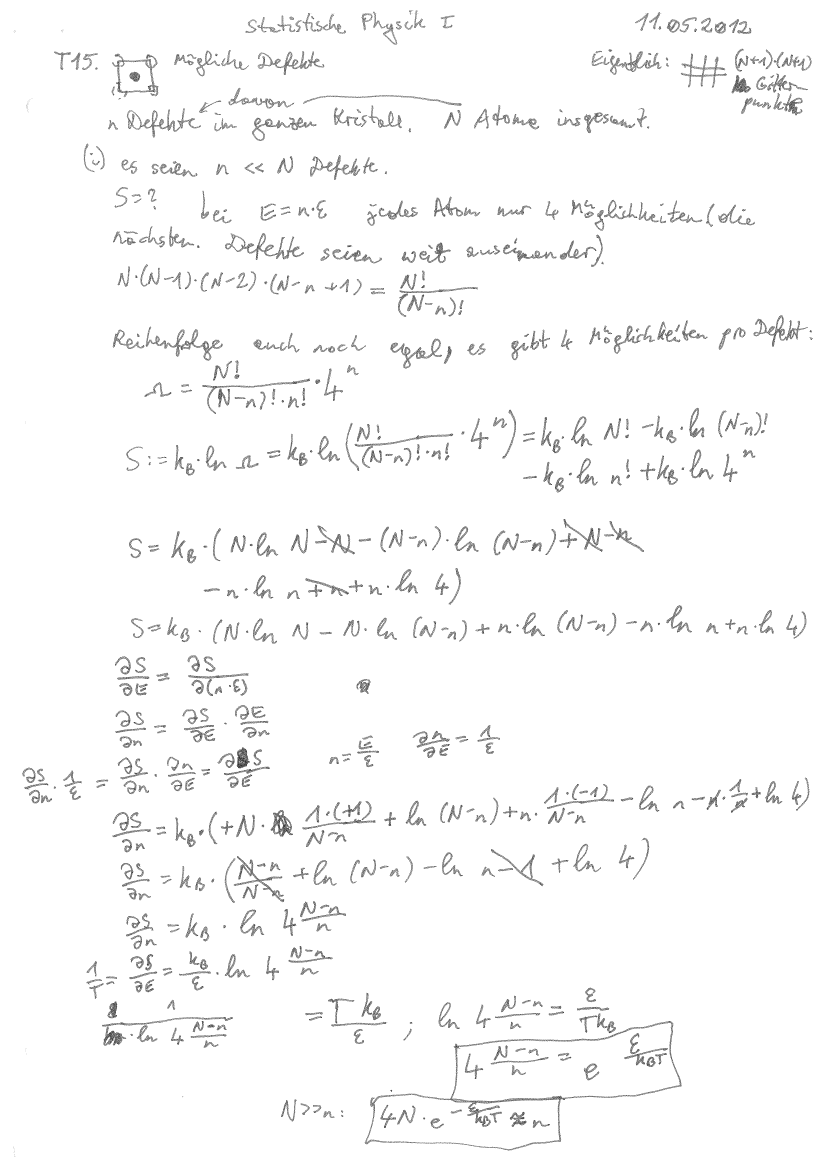 Statistische Physik I 11.05.2012
T15. Mögliche Defekte Eigentlich: (N+1)·(N+1) Gitterpunkte
davon
n Defekte im ganzen Kristall. N Atome insgesamt.
(i) es seien n << N Defekte.
S=? bei E=n·ε jedes Atom nur 4 Möglichkeiten (die
nächsten. Defekte seien weit auseinander).
N·(N-1)·(N-2)·(N-n+1) = N!/(N-n)!
Reihenfolge auch noch egal, es gibt 4 Möglichkeiten pro Defekt:
Ω = N!/((N-n)!·n!) · 4^n
S := k_B·ln Ω = k_B·ln (N!/((N-n)!·n!) · 4^n) = k_B·ln N! - k_B·ln (N-n)!
- k_B·ln n! + k_B·ln 4^n
S = k_B·(N·ln N - N - (N-n)·ln (N-n) + N - n
- n·ln n + n + n·ln 4)
S = k_B·(N·ln N - N·ln (N-n) + n·ln (N-n) - n·ln n + n·ln 4)
∂S/∂E = ∂S/∂(n·ε)
∂S/∂n = ∂S/∂E · ∂E/∂n
∂S/∂n · 1/ε = ∂S/∂n · ∂n/∂E = ∂S/∂E n = E/ε ∂n/∂E = 1/ε
∂S/∂n = k_B·(+N· 1·(+1)/(N-n) + ln (N-n) + n· 1·(-1)/(N-n) - ln n - n·1/n + ln 4)
∂S/∂n = k_B·((N-n)/(N-n) + ln (N-n) - ln n - 1 + ln 4)
∂S/∂n = k_B · ln 4 (N-n)/n
1/T = ∂S/∂E = k_B/ε · ln 4 (N-n)/n
1/(ln 4 (N-n)/n) = T k_B/ε ; ln 4 (N-n)/n = ε/(T k_B)
4 (N-n)/n = e^(ε/(k_B T))
N>>n: 4N·e^(-ε/(k_B T)) ≈ n